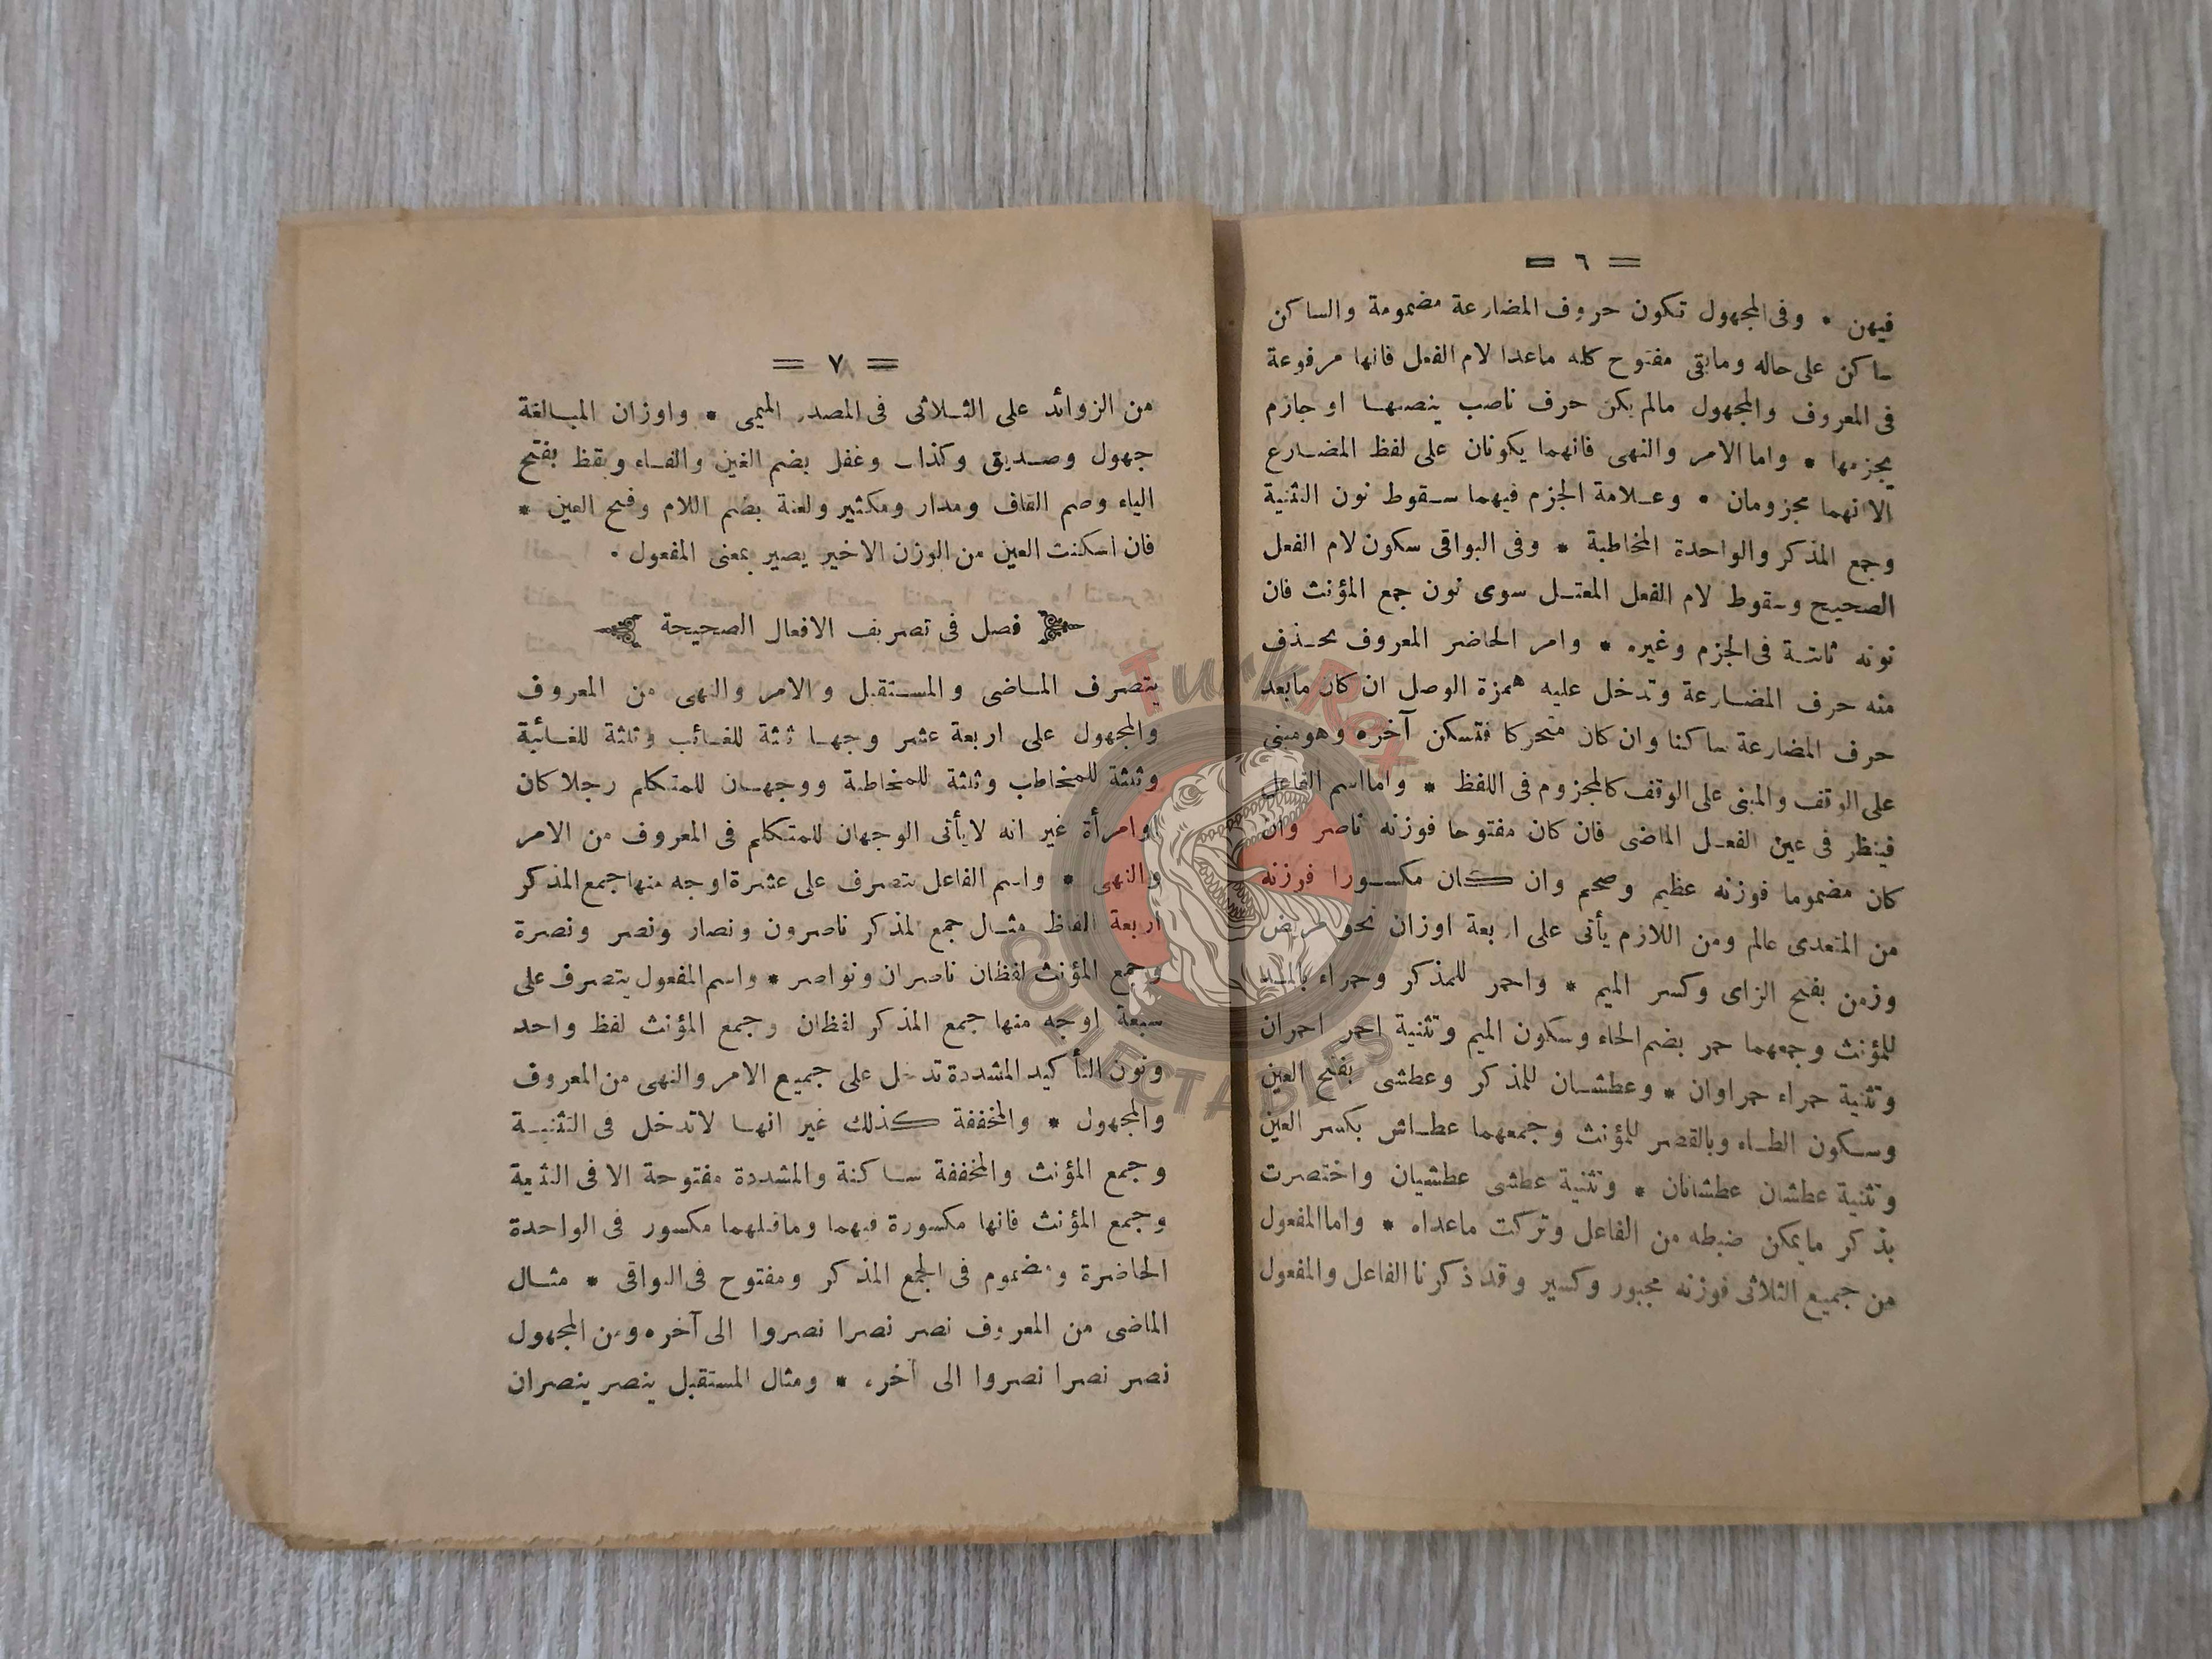 = ٦ =
فيهن * وفى المجهول تكون حروف المضارعة مضمومة والساكن
ساكن على حاله ومابقى مفتوح كله ماعدا لام الفعل فانها مرفوعة
فى المعروف والمجهول مالم يكن حرف ناصب ينصبها او جازم
يجزمها * واما الامر والنهى فانهما يكونان على لفظ المضارع
الا انهما مجزومان * وعلامة الجزم فيهما سقوط نون التثنية
وجمع المذكر والواحدة المخاطبة * وفى البواقى سكون لام الفعل
الصحيح وسقوط لام الفعل المعتل سوى نون جمع المؤنث فان
نونه ثابتة فى الجزم وغيره * وامر الحاضر المعروف بحذف
منه حرف المضارعة وتدخل عليه همزة الوصل ان كان مابعد
حرف المضارعة ساكنا وان كان متحركا فتسكن آخره وهو مبنى
على الوقف والمبنى على الوقف كالمجزوم فى اللفظ * واما اسم الفاعل
فينظر فى عين الفعل الماضى فان كان مفتوحا فوزنه ناصر وان
كان مضموما فوزنه عظيم وضخم وان كان مكسورا فوزنه
من المتعدى عالم ومن اللازم يأتى على اربعة اوزان نحو مريض
وزمن بفتح الزاى وكسر الميم * واحمر للمذكر وحمراء بالمد
للمؤنث وجمعهما حمر بضم الحاء وسكون الميم وتثنية احمر احمران
وتثنية حمراء حمراوان * وعطشان للمذكر وعطشى بفتح العين
وسكون الطاء وبالقصر للمؤنث وجمعهما عطاش بكسر العين
وتثنية عطشان عطشانان * وتثنية عطشى عطشيان واختصرت
بذكر مايمكن ضبطه من الفاعل وتركت ماعداه * واما المفعول
من جميع الثلاثى فوزنه مجبور وكسير وقد ذكرنا الفاعل والمفعول
= ٧ =
من الزوائد على الثلاثى فى المصدر الميمى * واوزان المبالغة
جهول وصديق وكذاب وغفل بضم الغين والفاء ويقظ بفتح
الياء وضم القاف ومدار ومكثير ولعنة بضم اللام وفتح العين *
فان اسكنت العين من الوزن الاخير يصير بمعنى المفعول .
فصل فى تصريف الافعال الصحيحة
يتصرف الماضى والمستقبل والامر والنهى من المعروف
والمجهول على اربعة عشر وجها ثلثة للغائب وثلثة للغائبة
وثلثة للمخاطب وثلثة للمخاطبة ووجهان للمتكلم رجلا كان
اوامرأة غير انه لايأتى الوجهان للمتكلم فى المعروف من الامر
والنهى * واسم الفاعل يتصرف على عشرة اوجه منها جمع المذكر
اربعة الفاظ مثال جمع لمذكر ناصرون ونصار ونصر ونصرة
وجمع المؤنث لفظان ناصران ونواصر * واسم المفعول يتصرف على
سبعة اوجه منها جمع المذكر لفظان وجمع المؤنث لفظ واحد
ونون التأكيد المشددة تدخل على جميع الامر والنهى من المعروف
والمجهول * والمخففة كذلك غير انها لاتدخل فى التثنية
وجمع المؤنث والمخففة ساكنة والمشددة مفتوحة الا فى التثنية
وجمع المؤنث فانها مكسورة فيهما وماقبلهما مكسور فى الواحدة
الحاضرة ومضموم فى الجمع المذكر ومفتوح فى البواقى * مثال
الماضى من المعروف نصر نصرا نصروا الى آخره ومن المجهول
نصر نصرا نصروا الى آخره * ومثال المستقبل ينصر ينصران
TurkRex
COLLECTABLES